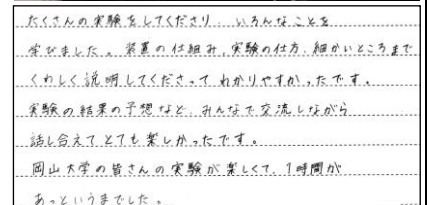 たくさんの実験をしてくださり、いろんなことを
学びました。装置の仕組み、実験の仕方、細かいところまで
くわしく説明してくださって わかりやすかったです。
実験の結果の予想など、みんなで交流しながら
話し合えて とても楽しかったです。
岡山大学の皆さんの実験が楽しくて、1時間が
あっというまでした。